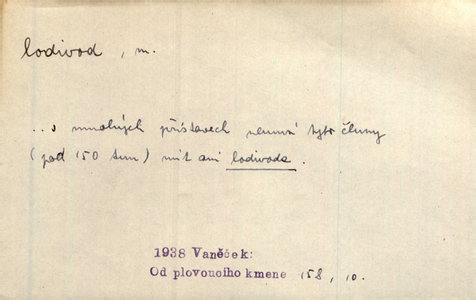 lodivod, m.
... v mnohých přístavech nemusí tyto čluny
(pod 150 tun) mít ani lodivoda.
1938 Vaněček:
Od plovoucího kmene 158, 10.